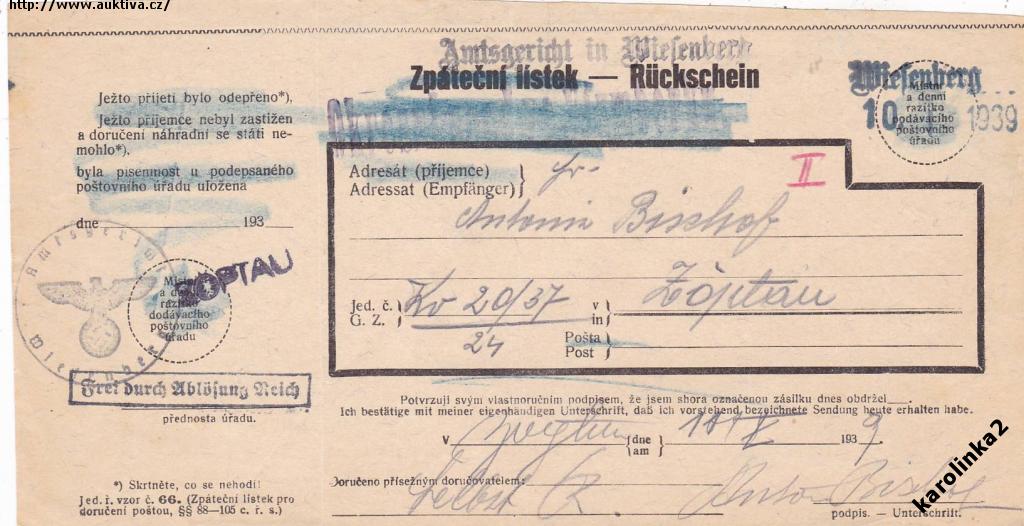 http://www.auktiva.cz/
Amtsgericht in Wiesenberg
Zpáteční lístek — Rückschein
Wiesenberg
10. 1939
Místní
a denní
razítko
podávacího
poštovního
úřadu
Ježto přijetí bylo odepřeno*),
Ježto příjemce nebyl zastižen
a doručení náhradní se státi ne-
mohlo*),
byla písemnost u podepsaného
poštovního úřadu uložena
dne 193
Amtsgericht Wiesenberg
ZÖPTAU
Místní
a denní
razítko
dodávacího
poštovního
úřadu
Frei durch Ablösung Reich
přednosta úřadu.
*) Skrtněte, co se nehodí!
Jed. ř. vzor č. 66. (Zpáteční lístek pro
doručení poštou, §§ 88—105 c. ř. s.)
II
Adresát (příjemce)
Adressat (Empfänger)
Fr.
Bischof
Jed. č.
G. Z.
20/37
24
v
in
Zöptau
Pošta
Post
Potvrzuji svým vlastnoručním podpisem, že jsem shora označenou zásilku dnes obdržel
Ich bestätige mit meiner eigenhändigen Unterschrift, daß ich vorstehend bezeichnete Sendung heute erhalten habe.
V
dne
am
1939
Doručeno přísežným doručovatelem:
Bischof
podpis. — Unterschrift.
karolinka2